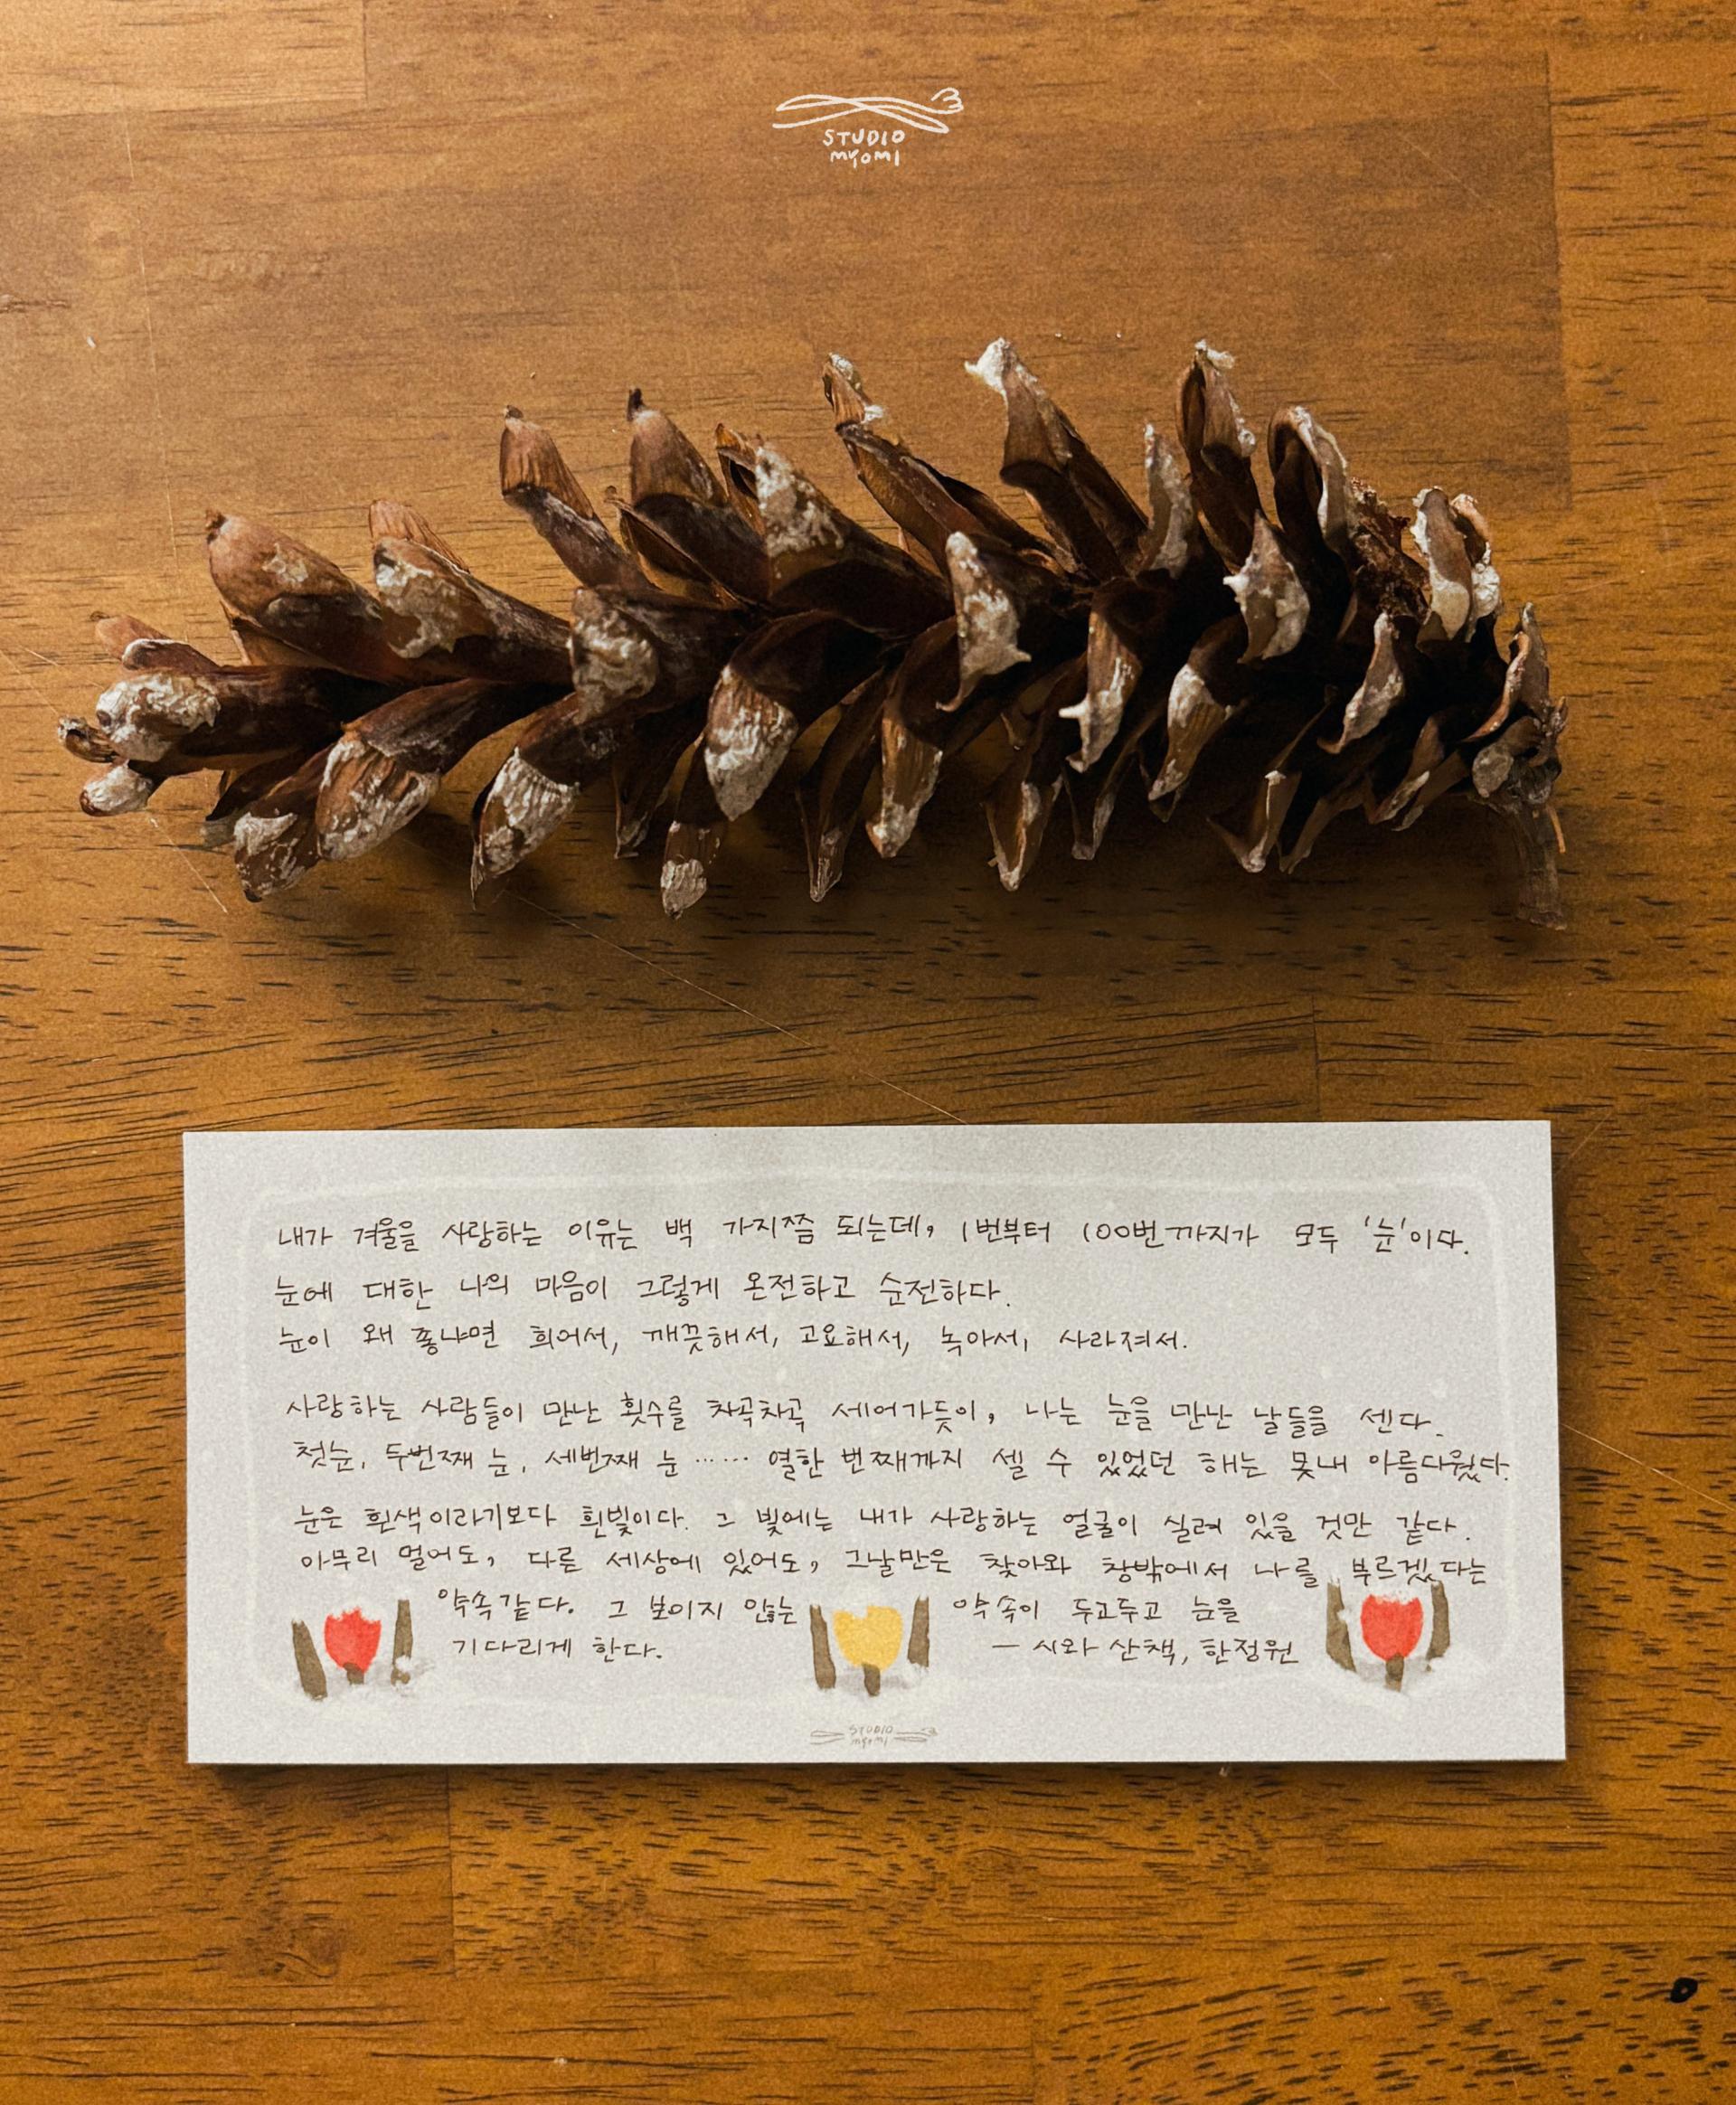 STUDIO
myomi
내가 겨울을 사랑하는 이유는 백 가지쯤 되는데, 1번부터 100번까지가 모두 '눈'이다.
눈에 대한 나의 마음이 그렇게 온전하고 순전하다.
눈이 왜 좋냐면 희어서, 깨끗해서, 고요해서, 녹아서, 사라져서.
사랑하는 사람들이 만난 횟수를 차곡차곡 세어가듯이, 나는 눈을 만난 날들을 센다.
첫눈, 두번째 눈, 세번째 눈 …… 열한 번째까지 셀 수 있었던 해는 못내 아름다웠다.
눈은 흰색이라기보다 흰빛이다. 그 빛에는 내가 사랑하는 얼굴이 실려 있을 것만 같다.
아무리 멀어도, 다른 세상에 있어도, 그날만은 찾아와 창밖에서 나를 부르겠다는
약속같다. 그 보이지 않는 약속이 두고두고 눈을
기다리게 한다. — 시와 산책, 한정원
STUDIO
myomi